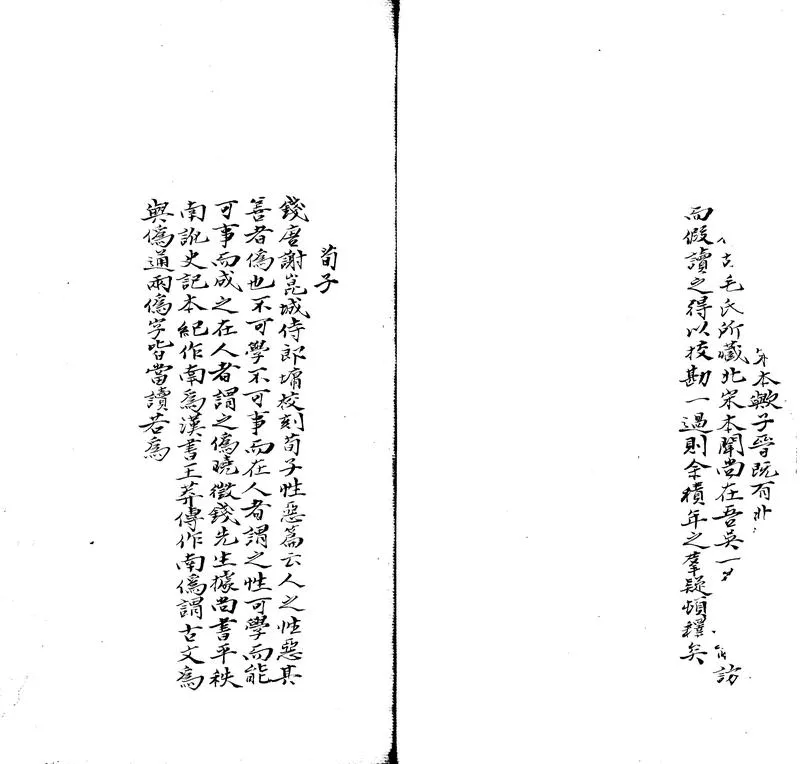 本歟子晉既有北
毛氏所藏北宋本聞尚在吾吳一 訪
而假讀之得以校勘一過則余積年之羣疑頓釋矣
荀子
錢唐謝崑城侍郎墉校刻荀子性惡篇云人之性惡其
善者僞也不可學不可事而在人者謂之性可學而能
可事而成之在人者謂之僞曉徵錢先生據尚書平秩
南訛史記本紀作南爲漢書王莽傳作南僞謂古文爲
與僞通兩僞字皆當讀若爲